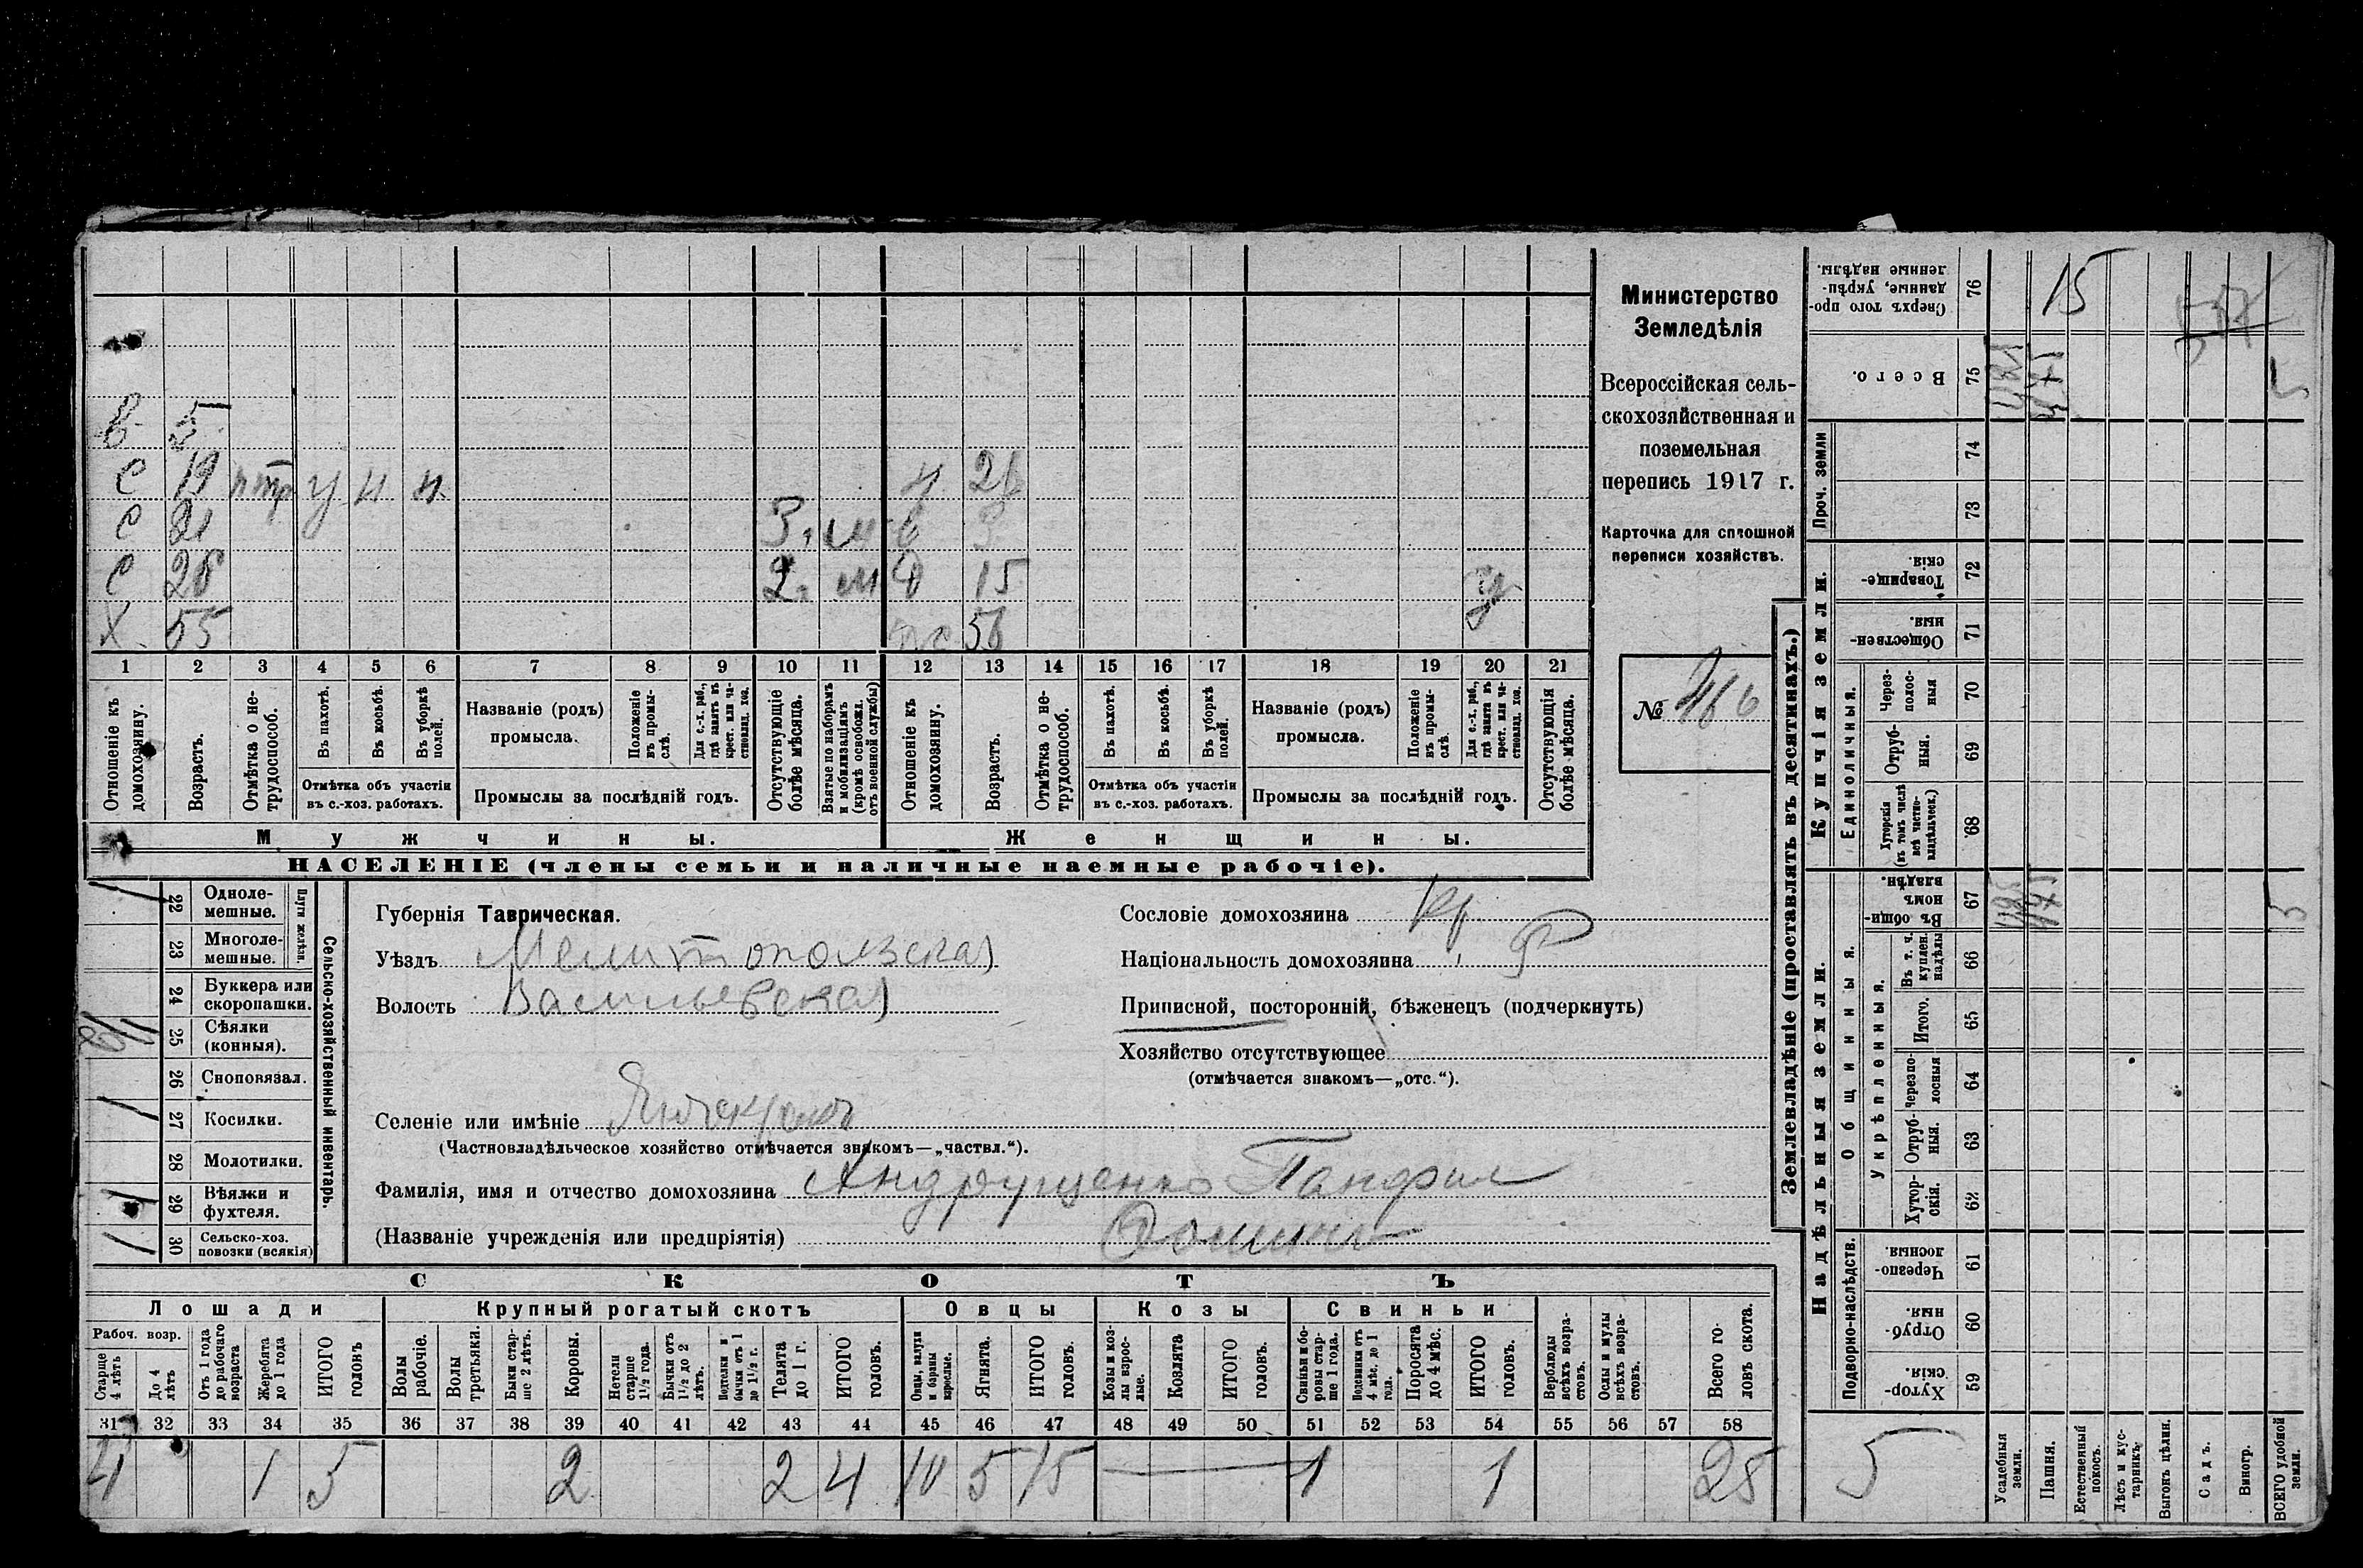 Министерство
Земледѣлія
Всероссійская сель-
скохозяйственная и
поземельная
перепись 1917 г.
Карточка для сплошной
переписи хозяйствъ.
№
в 5
с 19 у н н 4
с 21 3. м
с 26 2. м д 15 у
х 55 56
1 2 3 4 5 6 7 8 9 10 11 12 13 14 15 16 17 18 19 20 21
Отношеніе къ домохозяину.
Возрастъ.
Отмѣтка о не-трудоспособ.
Въ пахотѣ.
Въ косьбѣ.
Въ уборкѣ полей.
Отмѣтка объ участіи
въ с.-хоз. работахъ.
Названіе (родъ)
промысла.
Положеніе въ промы-слѣ.
Для с.-х. раб., гдѣ занятъ въ крест. или ча-стновлад. хоз.
Промыслы за послѣдній годъ.
Отсутствующіе болѣе мѣсяца.
Взятые по наборамъ и мобилизаціямъ (кромѣ освобожд. отъ военной службы)
Отношеніе къ домохозяину.
Возрастъ.
Отмѣтка о не-трудоспособ.
Въ пахотѣ.
Въ косьбѣ.
Въ уборкѣ полей.
Отмѣтка объ участіи
въ с.-хоз. работахъ.
Названіе (родъ)
промысла.
Положеніе въ промы-слѣ.
Для с.-х. раб., гдѣ занята въ крест. или ча-стновлад. хоз.
Промыслы за послѣдній годъ.
Отсутствующія болѣе мѣсяца.
Мужчины.
Женщины.
НАСЕЛЕНІЕ (члены семьи и наличные наемные рабочіе).
Сельско-хозяйственный инвентарь.
Плуги желѣзн.
1 22 Одноле-мешные.
23 Многоле-мешные.
24 Буккера или скоропашки.
25 Сѣялки (конныя).
26 Сноповязал.
1 27 Косилки.
28 Молотилки.
1 29 Вѣялки и фухтеля.
1 30 Сельско-хоз. повозки (всякія)
Губернія Таврическая.
Уѣздъ Мелитопольская
Волость Васильевская
Селеніе или имѣніе
(Частновладѣльческое хозяйство отмѣчается знакомъ—„частвл.“).
Фамилія, имя и отчество домохозяина Андрущенко Панфил
(Названіе учрежденія или предпріятія) Фомичъ
Сословіе домохозяина кр
Національность домохозяина
Приписной, посторонній, бѣженецъ (подчеркнуть)
Хозяйство отсутствующее
(отмѣчается знакомъ—„отс.“).
СКОТЪ
Лошади
Крупный рогатый скотъ
Овцы
Козы
Свиньи
Рабоч. возр.
Старше 4 лѣтъ
До 4 лѣтъ
Отъ 1 года до рабочаго возраста
Жеребята до 1 года
ИТОГО головъ
Волы рабочіе.
Волы третьяки.
Быки стар-ше 2 лѣтъ.
Коровы.
Нетели старше 1½ года.
Бычки отъ 1½ до 2 лѣтъ.
Подтелки и бычки отъ 1 до 1½ г.
Телята до 1 г.
ИТОГО головъ.
Овцы, валухи и бараны взрослые.
Ягнята.
ИТОГО головъ.
Козы и коз-лы взрос-лые.
Козлята
ИТОГО головъ.
Свиньи и бо-ровы стар-ше 1 года.
Подсвинки отъ 4 мѣс. до 1 года.
Поросята до 4 мѣс.
ИТОГО головъ.
Верблюды всѣхъ возра-стовъ.
Ослы и мулы всѣхъ возра-стовъ.
Всего го-ловъ скота.
31 32 33 34 35 36 37 38 39 40 41 42 43 44 45 46 47 48 49 50 51 52 53 54 55 56 57 58
4 1 5 2 2 4 10 5 15 1 1 25
Землевладѣніе (проставлять въ десятинахъ.)
Надѣльныя земли.
Купчія земли.
Проч. земли
Подворно-наслѣдств.
Общинныя.
Укрѣпленныя.
Единоличныя.
Сверхъ того про-данные, укрѣп-ленные надѣлы. 76 15
Всего. 75
74
73
Товарище-скія. 72
Обществен-ныя. 71
Через-полос-ныя 70
Отруб-ныя. 69
Хуторскія (въ томъ числѣ всѣ частно-владѣльческ.) 68
Въ общин-номъ владѣн. 67
Въ т. ч. куплен. надѣлы 66
Итого. 65
Черезпо-лосныя 64
Отруб-ныя. 63
Хутор-скія. 62
Черезпо-лосныя. 61
Отруб-ныя. 60
Хутор-скія. 59
5
Усадебныя земли.
Пашня.
Естественный покосъ.
Лѣсъ и кус-тарникъ.
Выгонъ цѣлин.
Садъ.
Виногр.
ВСЕГО удобной земли.